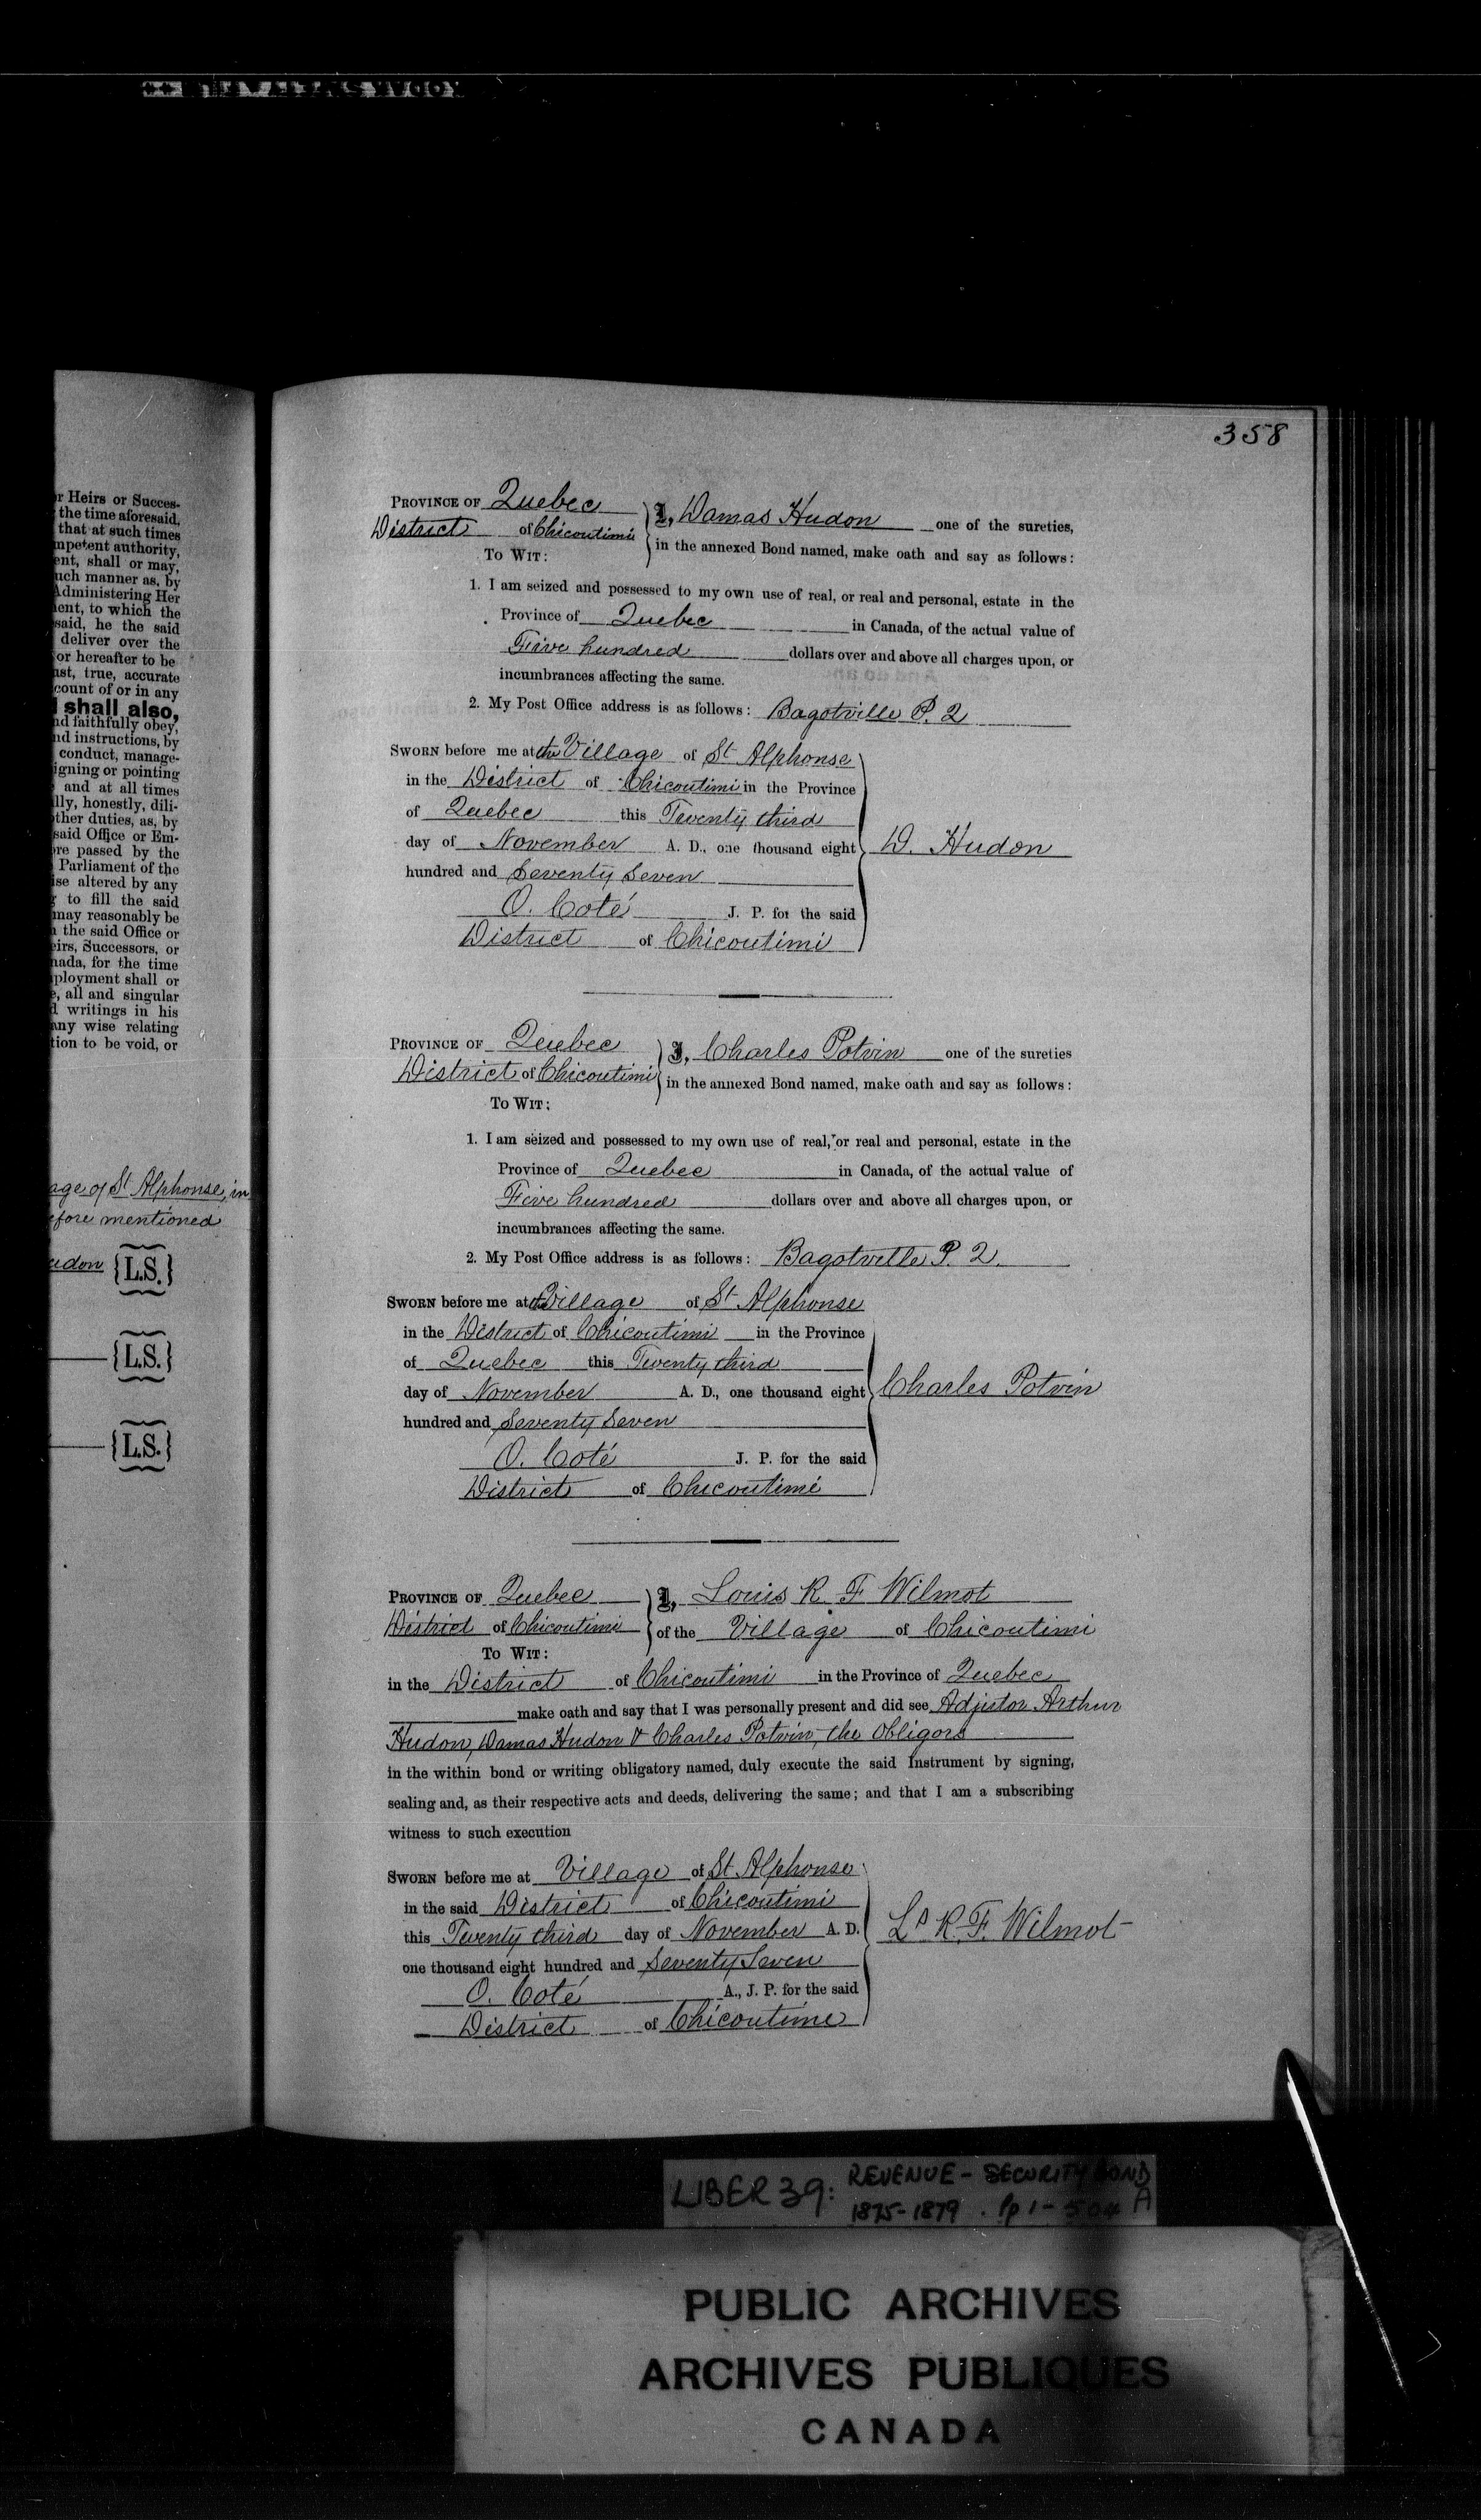 358
r Heirs or Succes-
the time aforesaid,
that at such times
mpetent authority,
ent, shall or may,
uch manner as, by
Administering Her
ent, to which the
said, he the said
deliver over the
or hereafter to be
ust, true, accurate
count of or in any
shall also,
nd faithfully obey,
nd instructions, by
conduct, manage-
igning or pointing
and at all times
lly, honestly, dili-
other duties, as, by
said Office or Em-
ore passed by the
Parliament of the
ise altered by any
to fill the said
may reasonably be
the said Office or
eirs, Successors, or
nada, for the time
ployment shall or
e, all and singular
d writings in his
any wise relating
tion to be void, or
age of St Alphonse, in
efore mentioned
udon {L.S.}
{L.S.}
{L.S.}
PROVINCE OF Quebec
District of Chicoutimi
TO WIT:
I, Damas Hudon one of the sureties,
in the annexed Bond named, make oath and say as follows:
1. I am seized and possessed to my own use of real, or real and personal, estate in the
Province of Quebec in Canada, of the actual value of
Five hundred dollars over and above all charges upon, or
incumbrances affecting the same.
2. My Post Office address is as follows: Bagotville P. Q
SWORN before me at the Village of St Alphonse
in the District of Chicoutimi in the Province
of Quebec this Twenty third
day of November A. D., one thousand eight
hundred and Seventy Seven
D. Hudon
O. Coté J. P. for the said
District of Chicoutimi
PROVINCE OF Quebec
District of Chicoutimi
TO WIT:
I, Charles Potvin one of the sureties
in the annexed Bond named, make oath and say as follows:
1. I am seized and possessed to my own use of real, or real and personal, estate in the
Province of Quebec in Canada, of the actual value of
Five hundred dollars over and above all charges upon, or
incumbrances affecting the same.
2. My Post Office address is as follows: Bagotville P. Q.
SWORN before me at the Village of St Alphonse
in the District of Chicoutimi in the Province
of Quebec this Twenty third
day of November A. D., one thousand eight
hundred and Seventy Seven
Charles Potvin
O. Coté J. P. for the said
District of Chicoutimi
PROVINCE OF Quebec
District of Chicoutimi
TO WIT:
I, Louis R. F Wilmot
of the Village of Chicoutimi
in the District of Chicoutimi in the Province of Quebec
make oath and say that I was personally present and did see Adjutor Arthur
Hudon, Damas Hudon & Charles Potvin, the Obligors
in the within bond or writing obligatory named, duly execute the said Instrument by signing,
sealing and, as their respective acts and deeds, delivering the same; and that I am a subscribing
witness to such execution
SWORN before me at Village of St Alphonse
in the said District of Chicoutimi
this Twenty third day of November A. D.
one thousand eight hundred and Seventy Seven
Ls R. F. Wilmot
O. Coté A., J. P. for the said
District of Chicoutimi
LIBER 39: REVENUE - SECURITY BOND
1875-1879 . Pp 1 - 504 A
PUBLIC ARCHIVES
ARCHIVES PUBLIQUES
CANADA